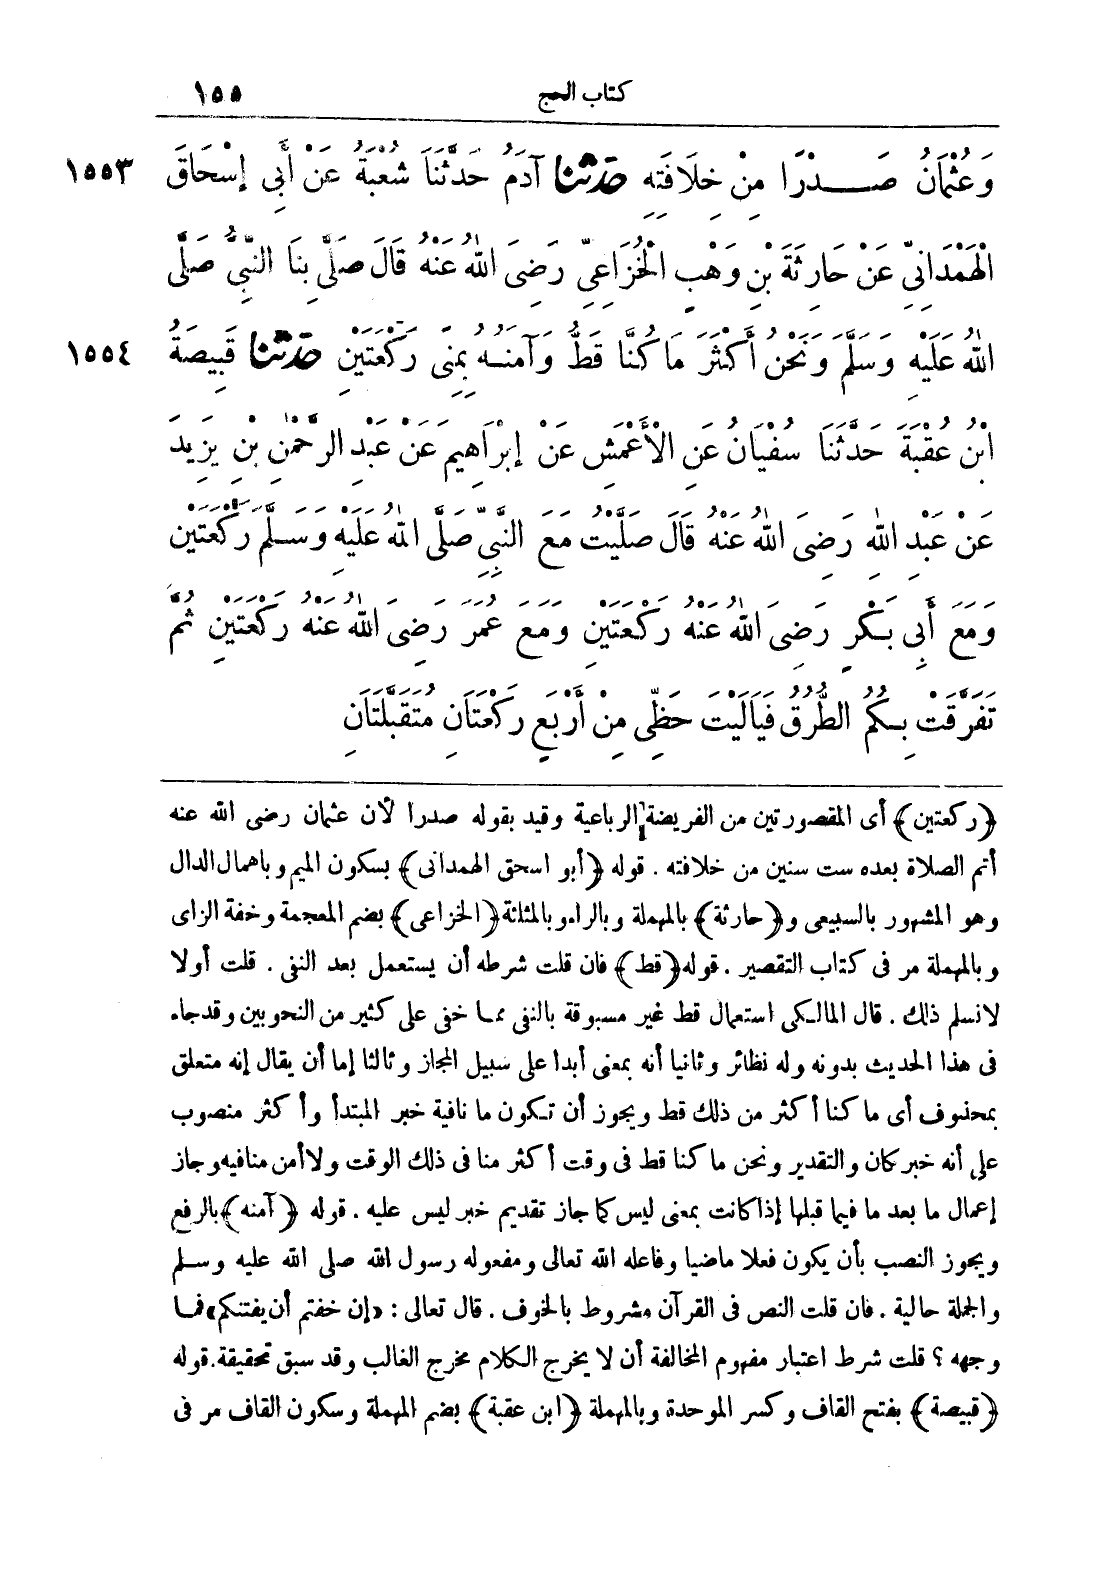 كتاب الحج ١٥٥
وَعُثْمَانُ صَدْرًا مِنْ خِلَافَتِهِ حَدَّثَنَا آدَمُ حَدَّثَنَا شُعْبَةُ عَنْ أَبِى إِسْحَاقَ ١٥٥٣
الْهَمْدَانِىِّ عَنْ حَارِثَةَ بْنِ وَهْبٍ الْخُزَاعِىِّ رَضِىَ اللهُ عَنْهُ قَالَ صَلَّى بِنَا النَّبِىُّ صَلَّى
اللهُ عَلَيْهِ وَسَلَّمَ وَنَحْنُ أَكْثَرَ مَا كُنَّا قَطُّ وَآمَنُهُ بِمِنًى رَكْعَتَيْنِ حَدَّثَنَا قَبِيصَةُ ١٥٥٤
ابْنُ عُقْبَةَ حَدَّثَنَا سُفْيَانُ عَنِ الْأَعْمَشِ عَنْ إِبْرَاهِيمَ عَنْ عَبْدِ الرَّحْمٰنِ بْنِ يَزِيدَ
عَنْ عَبْدِ اللهِ رَضِىَ اللهُ عَنْهُ قَالَ صَلَّيْتُ مَعَ النَّبِىِّ صَلَّى اللهُ عَلَيْهِ وَسَلَّمَ رَكْعَتَيْنِ
وَمَعَ أَبِى بَكْرٍ رَضِىَ اللهُ عَنْهُ رَكْعَتَيْنِ وَمَعَ عُمَرَ رَضِىَ اللهُ عَنْهُ رَكْعَتَيْنِ ثُمَّ
تَفَرَّقَتْ بِكُمُ الطُّرُقُ فَيَالَيْتَ حَظِّى مِنْ أَرْبَعٍ رَكْعَتَانِ مُتَقَبَّلَتَانِ
﴿ركعتين﴾ أى المقصورتين من الفريضة الرباعية وقيد بقوله صدرا لأن عثمان رضى الله عنه
أتم الصلاة بعده ست سنين من خلافته . قوله ﴿أبو اسحق الهمدانى﴾ بسكون الميم وباهمال الدال
وهو المشهور بالسبيعى و﴿حارثة﴾ بالمهملة وبالراء وبالمثلثة ﴿الخزاعى﴾ بضم المعجمة وخفة الزاى
وبالمهملة مر فى كتاب التقصير . قوله ﴿قط﴾ فان قلت شرطه أن يستعمل بعد النفى . قلت أولا
لانسلم ذلك . قال المالكى استعمال قط غير مسبوقة بالنفى مما خفى على كثير من النحويين وقدجاء
فى هذا الحديث بدونه وله نظائر وثانيا أنه بمعنى أبدا على سبيل المجاز وثالثا إما أن يقال إنه متعلق
بمحذوف أى ما كنا أكثر من ذلك قط ويجوز أن تكون ما نافية خبر المبتدأ وأكثر منصوب
على أنه خبر كان والتقدير ونحن ما كنا قط فى وقت أكثر منا فى ذلك الوقت ولا أمن منافيه وجاز
إعمال ما بعد ما فيما قبلها إذا كانت بمعنى ليس كما جاز تقديم خبر ليس عليه . قوله ﴿آمنه﴾ بالرفع
ويجوز النصب بأن يكون فعلا ماضيا وفاعله الله تعالى ومفعوله رسول الله صلى الله عليه وسلم
والجملة حالية . فان قلت النص فى القرآن مشروط بالخوف . قال تعالى : «إن خفتم أن يفتنكم» فما
وجهه ؟ قلت شرط اعتبار مفهوم المخالفة أن لا يخرج الكلام مخرج الغالب وقد سبق تحقيقة. قوله
﴿قبيصة﴾ بفتح القاف وكسر الموحدة وبالمهملة ﴿ابن عقبة﴾ بضم المهملة وسكون القاف مر فى